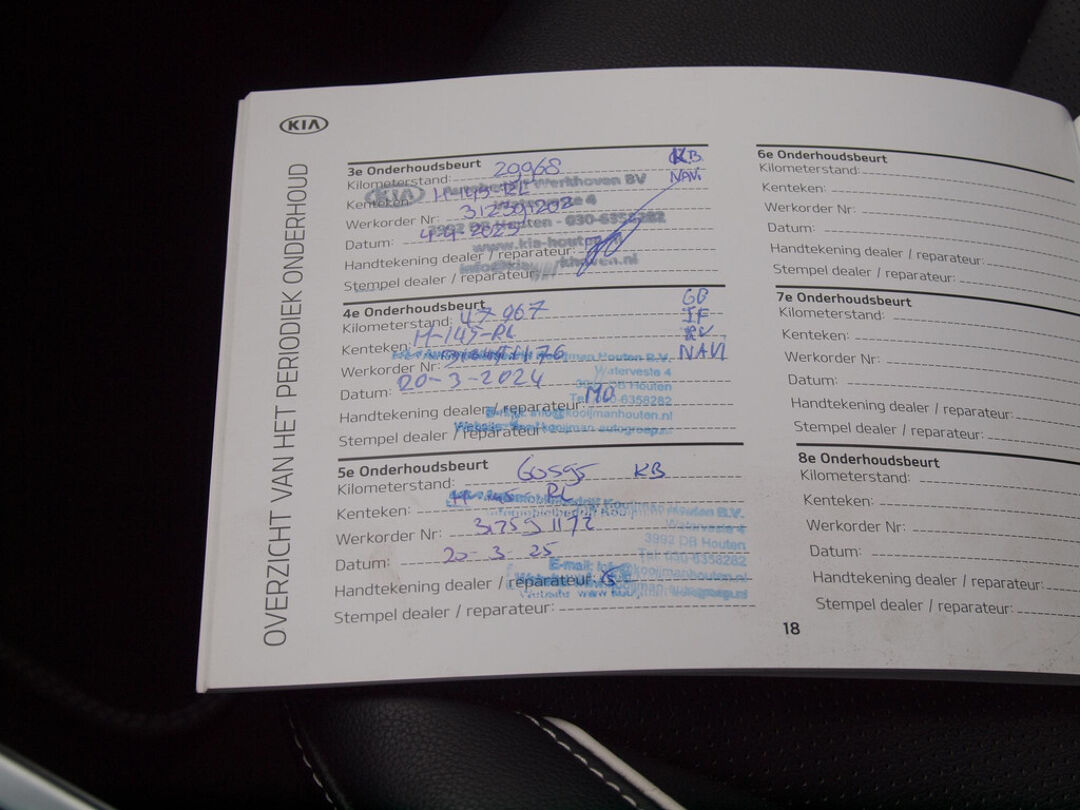 KIA
OVERZICHT VAN HET PERIODIEK ONDERHOUD
3e Onderhoudsbeurt
Kilometerstand: 29968
KB
NAVI
Kenteken: H-145-RL
Werkorder Nr: 312591208
Datum: 4-9-2023
Handtekening dealer / reparateur:
Stempel dealer / reparateur:
KIA Werkhoven BV
3992 DB Houten - 030-6358282
4e Onderhoudsbeurt
Kilometerstand: 47967
GB
NAVI
Kenteken: H-145-RL
Werkorder Nr:
Datum: 20-3-2024
Handtekening dealer / reparateur: MO
Stempel dealer / reparateur:
Kooijman Houten B.V.
Waterveste 4
3992 DB Houten
Tel. 030-6358282
E-mail: info@kooijmanhouten.nl
5e Onderhoudsbeurt
Kilometerstand: 60595 KB
Kenteken: H-145-RL
Werkorder Nr: 317591172
Datum: 20-3-25
Handtekening dealer / reparateur:
Stempel dealer / reparateur:
Houten B.V.
Waterveste 4
3992 DB Houten
Tel. 030-6358282
E-mail: info@kooijmanhouten.nl
6e Onderhoudsbeurt
Kilometerstand:
Kenteken:
Werkorder Nr:
Datum:
Handtekening dealer / reparateur:
Stempel dealer / reparateur:
7e Onderhoudsbeurt
Kilometerstand:
Kenteken:
Werkorder Nr:
Datum:
Handtekening dealer / reparateur:
Stempel dealer / reparateur:
8e Onderhoudsbeurt
Kilometerstand:
Kenteken:
Werkorder Nr:
Datum:
Handtekening dealer / reparateur:
Stempel dealer / reparateur:
18